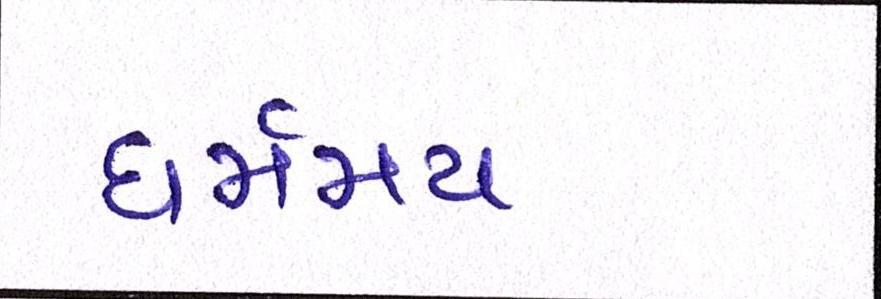 ધર્મમય